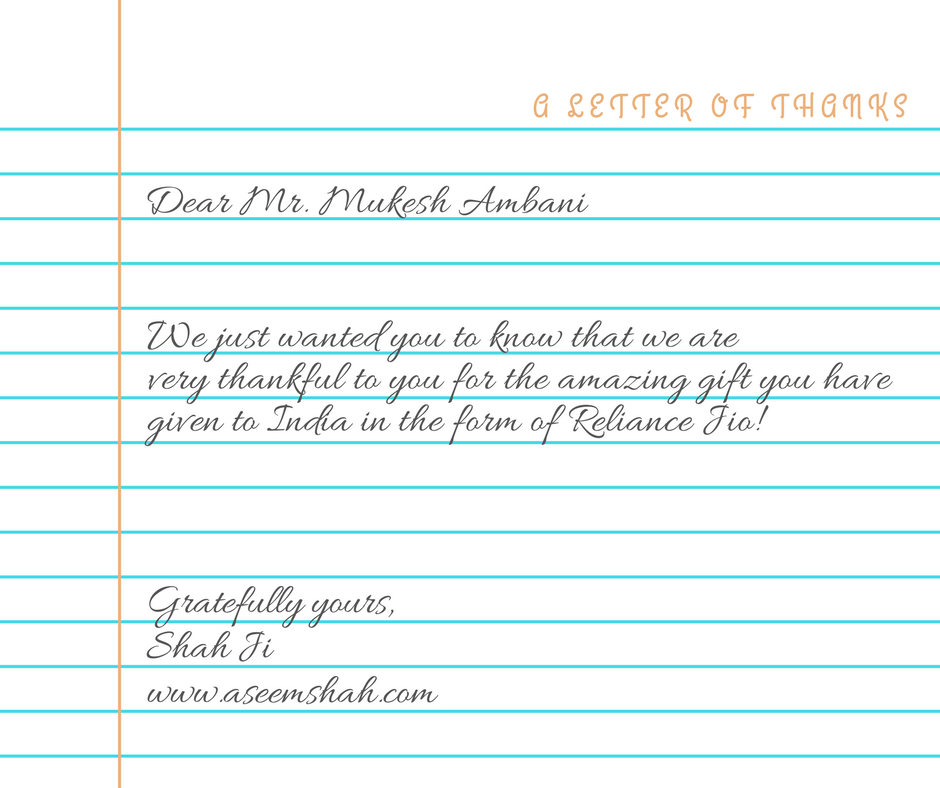 A LETTER OF THANKS
Dear Mr. Mukesh Ambani
We just wanted you to know that we are
very thankful to you for the amazing gift you have
given to India in the form of Reliance Jio!
Gratefully yours,
Shah Ji
www.aseemshah.com